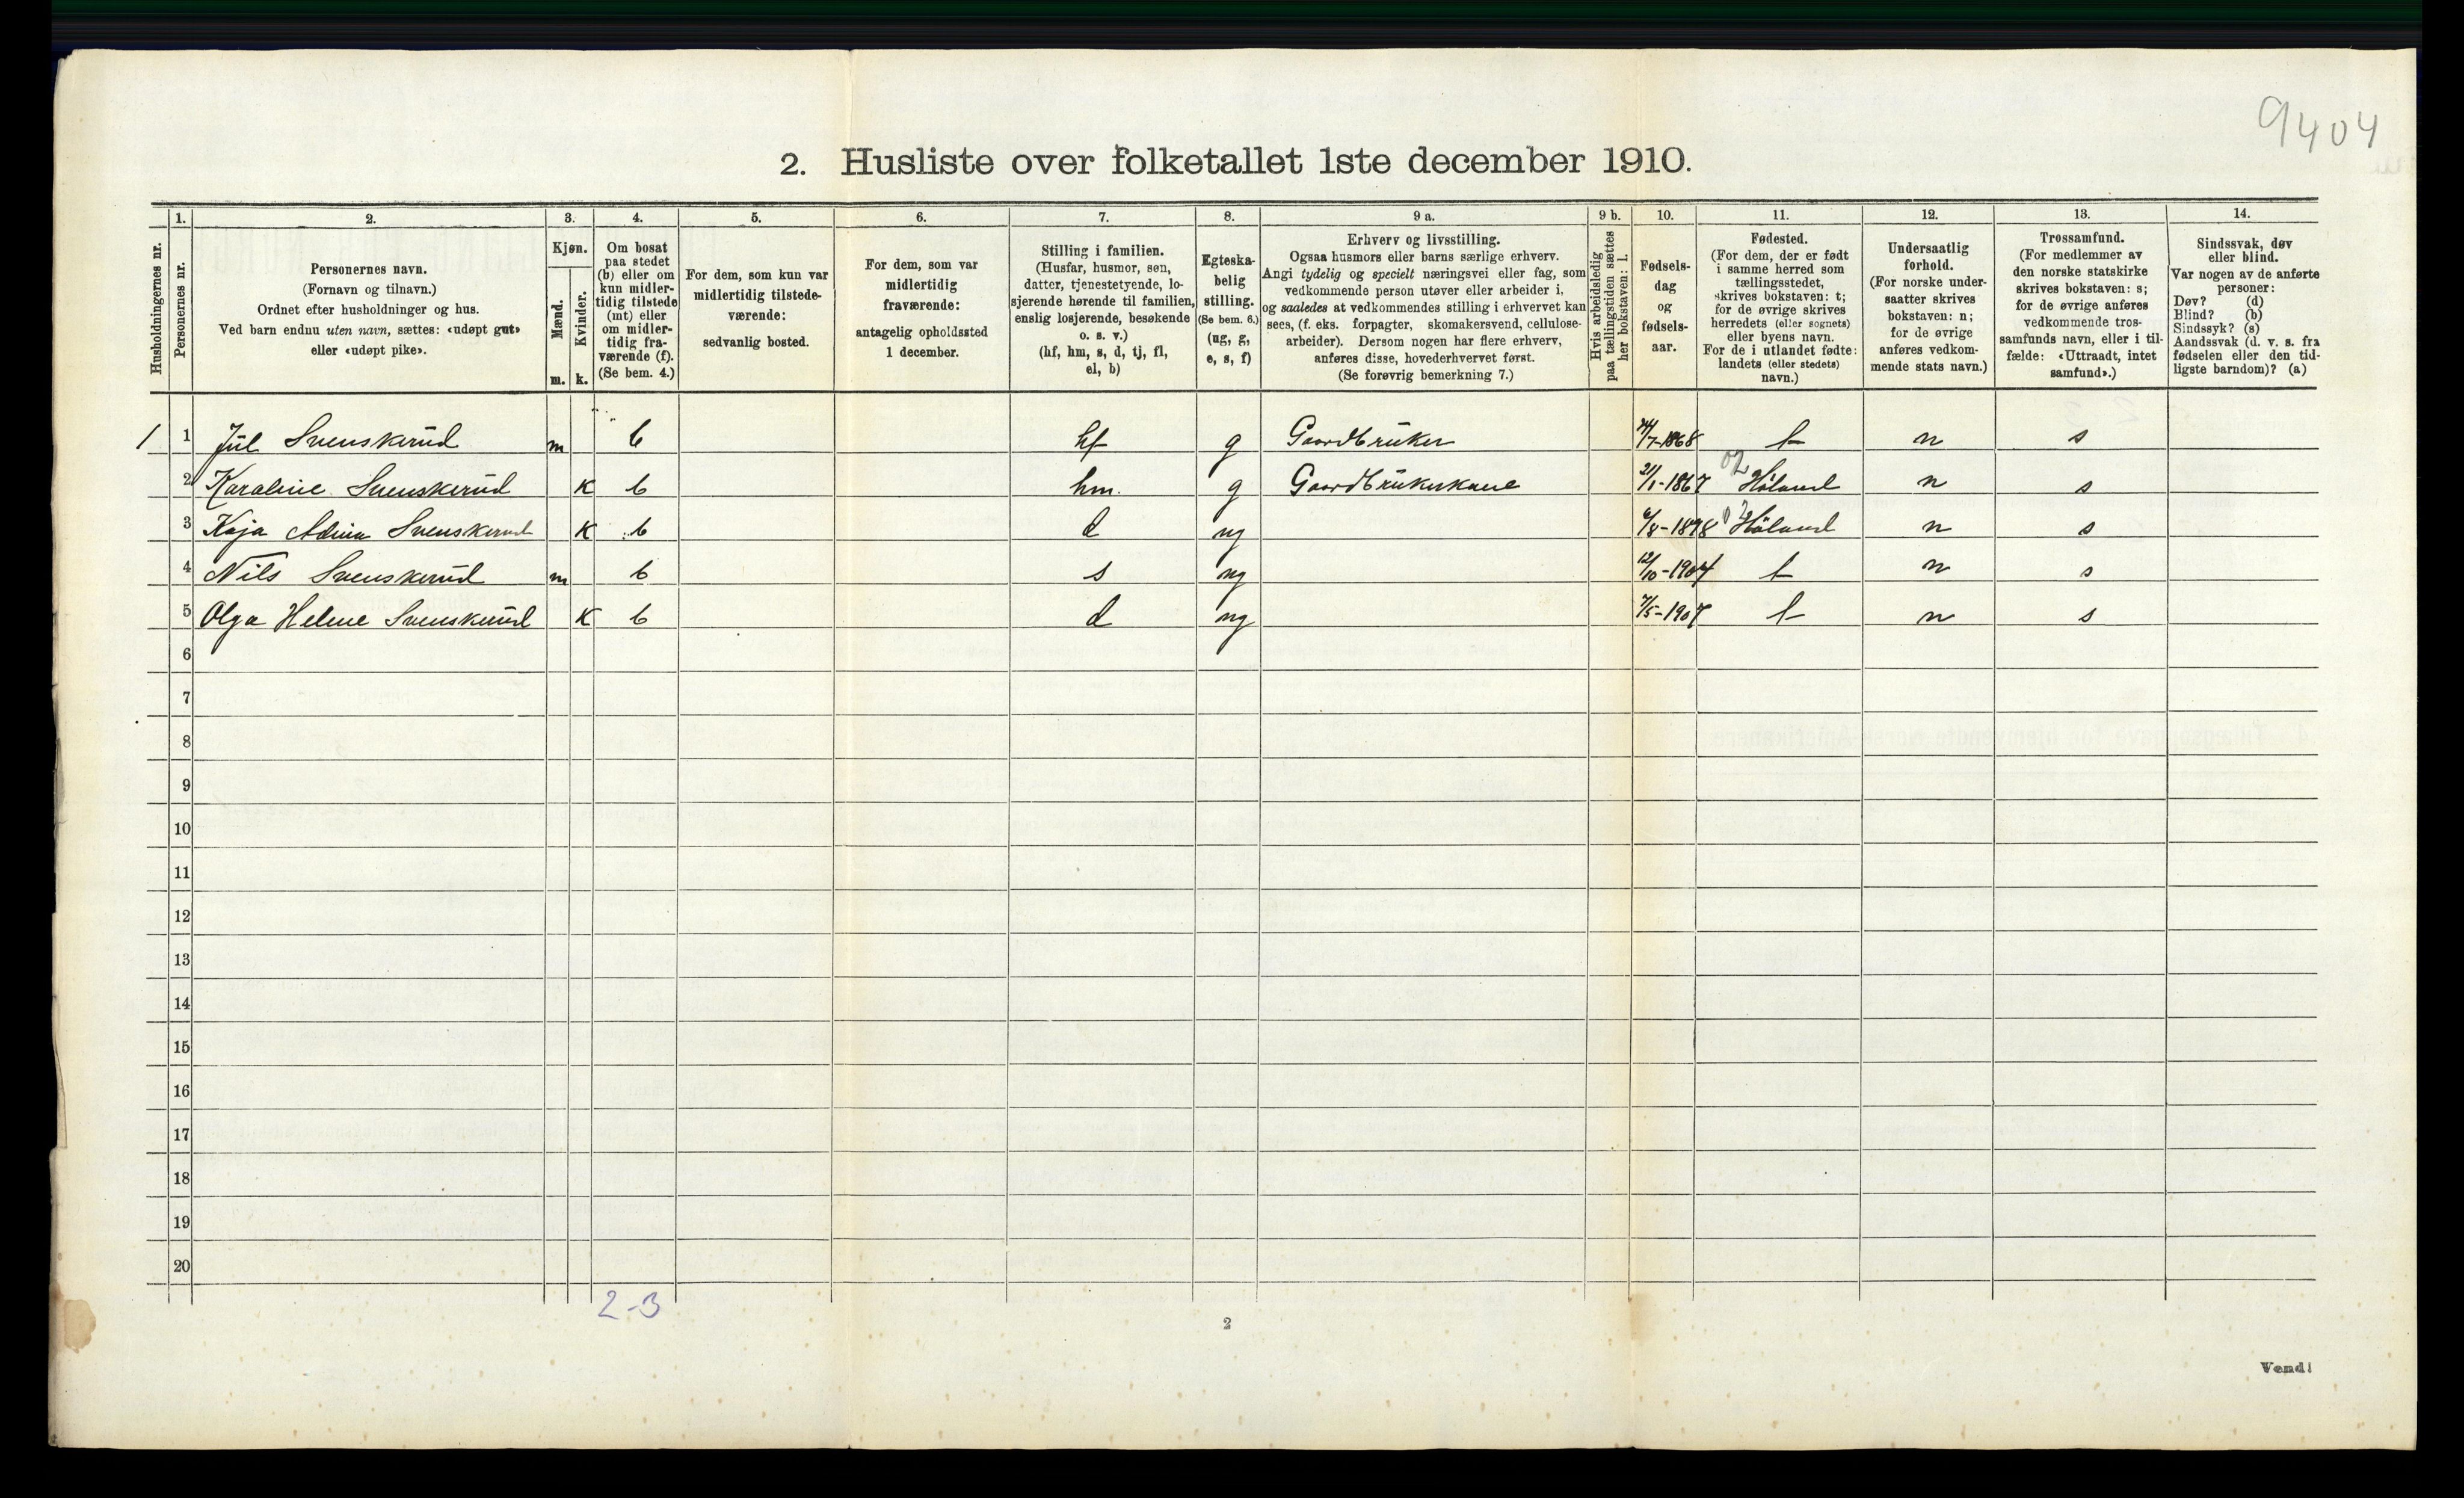 9404
2. Husliste over folketallet 1ste december 1910.
Husholdningernes nr.
1.
Personernes nr.
2.
Personernes navn.
(Fornavn og tilnavn.)
Ordnet efter husholdninger og hus.
Ved barn endnu uten navn, sættes: «udøpt gut»
eller «udøpt pike».
3.
Kjøn.
Mænd.
Kvinder.
m. k.
4.
Om bosat
paa stedet
(b) eller om
kun midler-
tidig tilstede
(mt) eller
om midler-
tidig fra-
værende (f).
(Se bem. 4.)
5.
For dem, som kun var
midlertidig tilstede-
værende:
sedvanlig bosted.
6.
For dem, som var
midlertidig
fraværende:
antagelig opholdssted
1 december.
7.
Stilling i familien.
(Husfar, husmor, søn,
datter, tjenestetyende, lo-
sjerende hørende til familien,
enslig losjerende, besøkende
o. s. v.)
(hf, hm, s, d, tj, fl,
el, b)
8.
Egteska-
belig
stilling.
(Se bem. 6.)
(ug, g,
e, s, f)
9 a.
Erhverv og livsstilling.
Ogsaa husmors eller barns særlige erhverv.
Angi tydelig og specielt næringsvei eller fag, som
vedkommende person utøver eller arbeider i,
og saaledes at vedkommendes stilling i erhvervet kan
sees, (f. eks. forpagter, skomakersvend, cellulose-
arbeider). Dersom nogen har flere erhverv,
anføres disse, hovederhvervet først.
(Se forøvrig bemerkning 7.)
9 b.
Hvis arbeidsledig
paa tællingstiden sættes
her bokstaven: l.
10.
Fødsels-
dag
og
fødsels-
aar.
11.
Fødested.
(For dem, der er født
i samme herred som
tællingsstedet,
skrives bokstaven: t;
for de øvrige skrives
herredets (eller sognets)
eller byens navn.
For de i utlandet fødte:
landets (eller stedets)
navn.)
12.
Undersaatlig
forhold.
(For norske under-
saatter skrives
bokstaven: n;
for de øvrige
anføres vedkom-
mende stats navn.)
13.
Trossamfund.
(For medlemmer av
den norske statskirke
skrives bokstaven: s;
for de øvrige anføres
vedkommende tros-
samfunds navn, eller i til-
fælde: «Uttraadt, intet
samfund».)
14.
Sindssvak, døv
eller blind.
Var nogen av de anførte
personer:
Døv? (d)
Blind? (b)
Sindssyk? (s)
Aandssvak (d. v. s. fra
fødselen eller den tid-
ligste barndom)? (a)
1 1 Jul Svenskerud m b hf g Gaardbruker 24/7-1868 t n s
2 Karoline Svenskerud K b hm. g Gaardbrukerkone 21/1-1867 Høland n s
3 Kaja Svenskerud K b d ug 6/8-1898 Høland n s
4 Nils Svenskerud m b s ug 12/10-1904 t n s
5 Olga Helene Svenskerud K b d ug 7/5-1907 t n s
6
7
8
9
10
11
12
13
14
15
16
17
18
19
20
2-3
2
Vend!